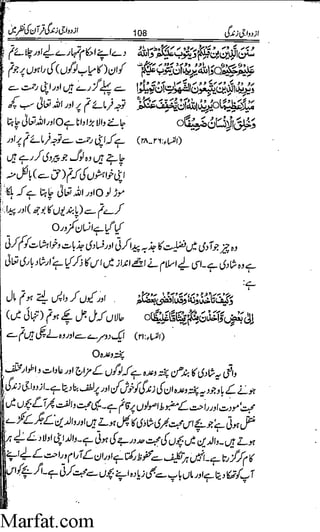 ازدواجی زندگی
108
ازدواجی زندگی قرآن کی نظر میں
سُنَنَ الَّذِيْنَ مِنْ قَبْلِكُمْ وَيَتُوْبَ عَلَيْكُمْ وَاللّٰهُ
عَلِيْمٌ حَكِيْمٌ وَاللّٰهُ يُرِيْدُ اَنْ يَّتُوْبَ عَلَيْكُمْ
وَيُرِيْدُ الَّذِيْنَ يَتَّبِعُوْنَ الشَّهَوٰتِ اَنْ تَمِيْلُوْا
مَيْلًا عَظِيْمًا يُرِيْدُ اللّٰهُ اَنْ يُّخَفِّفَ عَنْكُمْ
وَخُلِقَ الْاِنْسَانُ ضَعِيْفًا
(النساء: ۲۶۔۲۸)
دے اپنے احکام تمہارے لیے اور چلائے تم
کو ان (کامیاب لوگوں) کی راہوں پر جو تم
سے پہلے گزرے ہیں اور اپنی رحمت سے
توجہ فرمائے تم پر اور اللہ تعالیٰ سب کچھ
جاننے والا بڑا دانا ہے O اور اللہ تعالیٰ چاہتا
ہے کہ اپنی رحمت سے توجہ فرمائے تم پر اور
چاہتے ہیں وہ لوگ جو پیروی کر رہے ہیں
اپنی خواہشوں کی کہ تم (حق سے) بالکل منہ
موڑ لو O اور اللہ تعالیٰ چاہتا ہے کہ ہلکا
کرے تم سے (پابندیوں کا بوجھ) اور پیدا
کیا گیا ہے انسان کمزور O
وہ چیز جو آدمی میں فضیلت کا جذبہ پیدا کرتی اور فسادی جذبات و خواہشات کو کم کرتی
ہے وہ شادی ہے۔ اسی لیے اسلام نے اچھے انداز میں اس کا ذکر کیا ہے ارشاد باری تعالیٰ
ہے:
وَكَيْفَ تَأْخُذُوْنَهٗ وَقَدْ اَفْضٰى بَعْضُكُمْ
اِلٰى بَعْضٍ وَّاَخَذْنَ مِنْكُمْ مِّيْثَاقًا غَلِيْظًا
(النساء: ۲۱)
اور کیوں کر واپس لیتے ہو تم مال
حالاں کہ مل جل چکے ہو تم (تنہائی میں)
ایک دوسرے سے اور وہ لے چکی ہیں تم سے
پختہ وعدہ O
واقعی یہ شادی کا بندھن پختہ وعدہ ہے کہ لوگوں کے مزاج اور عادات و اطوار مختلف
ہونے کے باوجود یہ پختہ وعدہ ان کی زندگی کو خوش کن اور پرلطف بنا دیتا ہے۔ ازدواجی زندگی
محبت مودت اور راحت کے مضبوط اصولوں پر قائم ہے۔ یہی محبت و الفت پھر آگے بچوں میں
منتقل ہوتی ہے جو بچے اس محبت بھری شادی کا پھل ہوتے ہیں اور والدین کے جگر کے ٹکڑے
ہوتے ہیں۔ والدین میں بچوں کی محبت حد درجے کی ہوتی ہے۔ والد اپنی اولاد کے لیے ہر
کام کر گزرتا ہے۔ انہیں ہر تکلیف سے محفوظ رکھتا ہے اور ان کے آرام و راحت کے لیے اپنے
آپ کو تھکا دیتا ہے اور ماں باپ سے بھی زیادہ اپنے بچوں سے محبت کرتی ہے۔ اگر بچے کو اس
Marfat.com